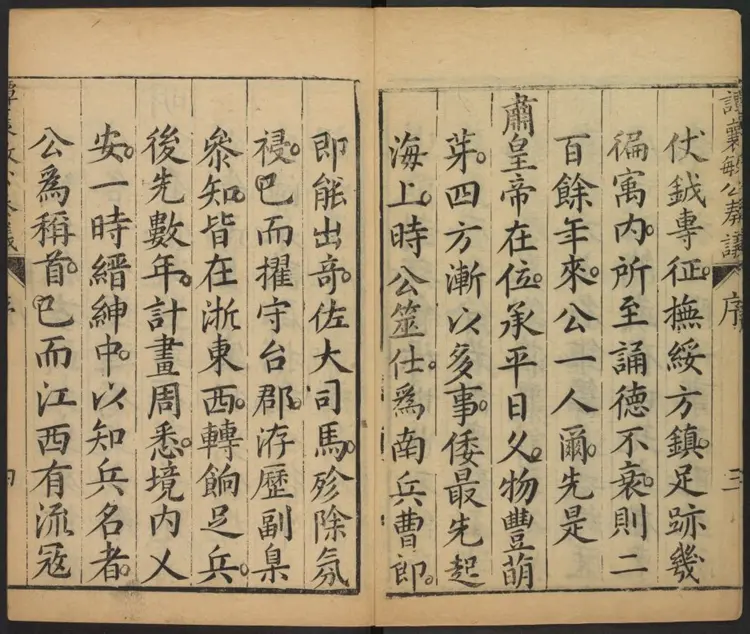 譚襄敏公奏議 序 三
仗鉞專征。撫綏方鎮。足跡幾
徧寓內。所至誦德不衰。則二
百餘年來。公一人爾。先是
肅皇帝在位。承平日久。物豐萌
芽。四方漸以多事。倭最先起
海上。時公筮仕。爲南兵曹郎。
即能出奇。佐大司馬。殄除氛
祲。已而擢守台郡。洊歷副臬
叅知。皆在浙東西。轉餉足兵。
後先數年。計畫周悉。境內乂
安。一時縉紳中。以知兵名者。
公爲稱首。已而江西有流寇